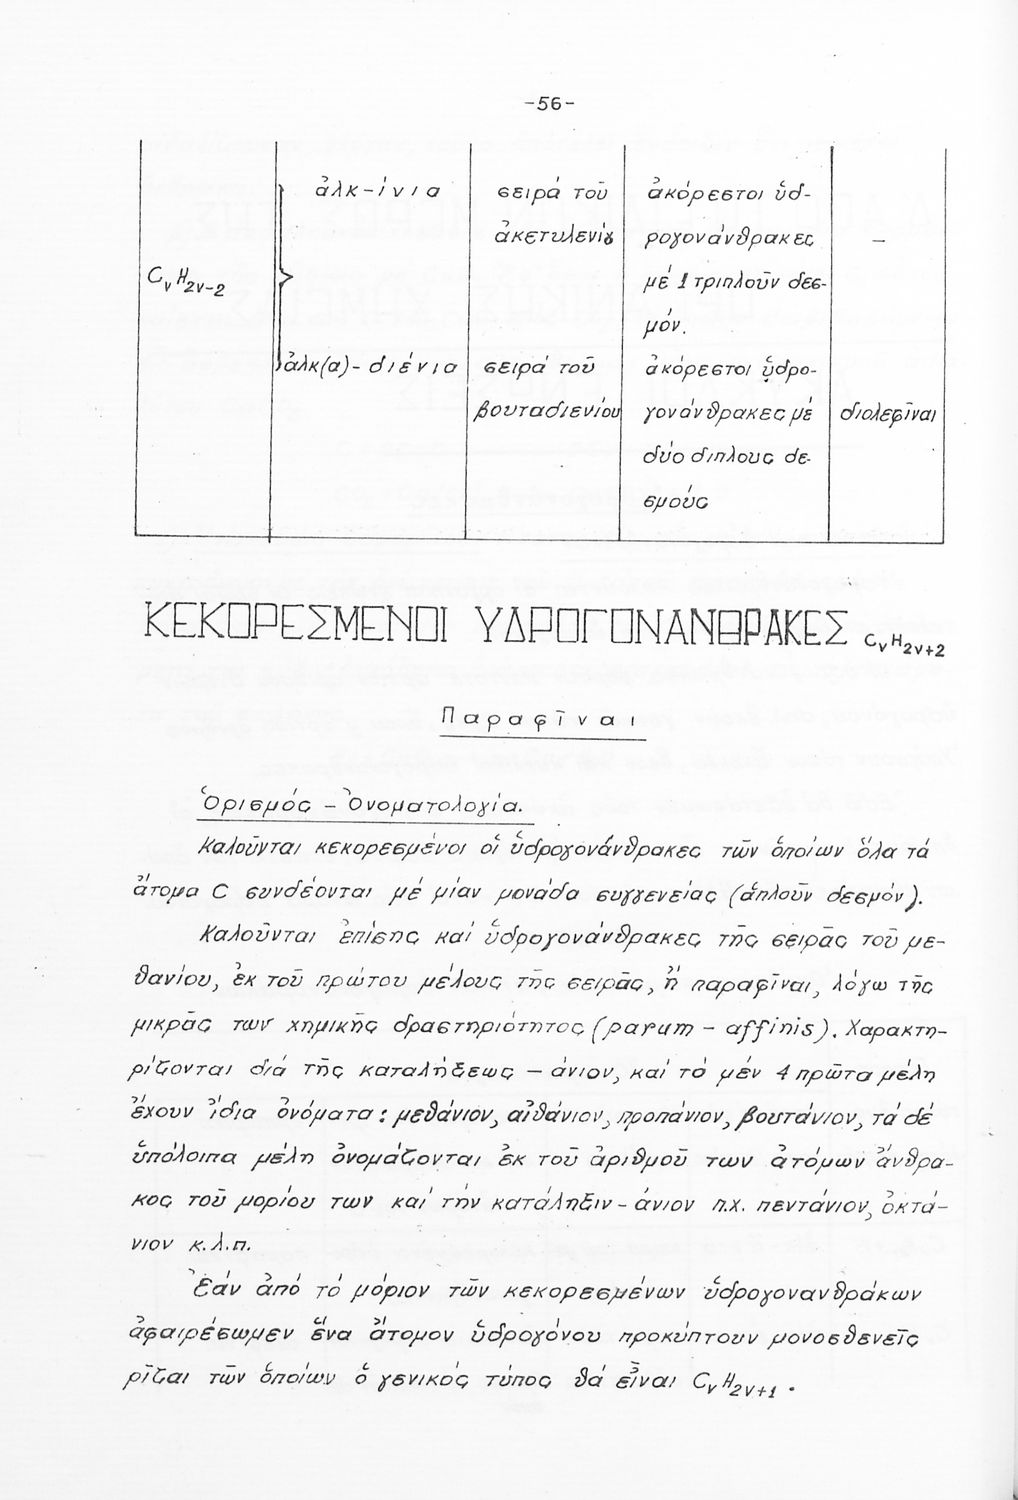 -56-
ἀλκ-ίνια σειρά τοῦ ἀκόρεστοι ὑδ-
ἀκετυλενίȣ ρογονάνθρακες –
CνH2ν-2 μέ 1 τριπλοῦν δεσ-
μόν.
ἀλκ(α)-διένια σειρά τοῦ ἀκόρεστοι ὑδρο-
βουταδιενίου γονάνθρακες μέ διολεφῖναι
δύο διπλους δε-
σμούς
ΚΕΚΟΡΕΣΜΕΝΟΙ ΥΔΡΟΓΟΝΑΝΘΡΑΚΕΣ CνH2ν+2
Παραφῖναι
Ὁρισμός – Ὀνοματολογία.
Καλοῦνται κεκορεσμένοι οἱ ὑδρογονάνθρακες τῶν ὁποίων ὅλα τά
ἄτομα C συνδέονται μέ μίαν μονάδα συγγενείας (ἁπλοῦν δεσμόν).
Καλοῦνται ἐπίσης καί ὑδρογονάνθρακες τῆς σειρᾶς τοῦ με-
θανίου, ἐκ τοῦ πρώτου μέλους τῆς σειρᾶς, ἤ παραφῖναι, λόγω τῆς
μικρᾶς των χημικῆς δραστηριότητος (parum – affinis). Χαρακτη-
ρίζονται διά τῆς καταλήξεως – άνιον, καί τά μέν 4 πρῶτα μέλη
ἔχουν ἴδια ὀνόματα: μεθάνιον, αἰθάνιον, προπάνιον, βουτάνιον, τά δέ
ὑπόλοιπα μέλη ὀνομάζονται ἐκ τοῦ ἀριθμοῦ των ἀτόμων ἄνθρα-
κος τοῦ μορίου των καί τήν κατάληξιν - άνιον π.χ. πεντάνιον, ὀκτά-
νιον κ.λ.π.
Ἐάν ἀπό τό μόριον τῶν κεκορεσμένων ὑδρογονανθράκων
ἀφαιρέσωμεν ἕνα ἄτομον ὑδρογόνου προκύπτουν μονοσθενεῖς
ρῖζαι τῶν ὁποίων ὁ γενικός τύπος θά εἶναι CνH2ν+1 .